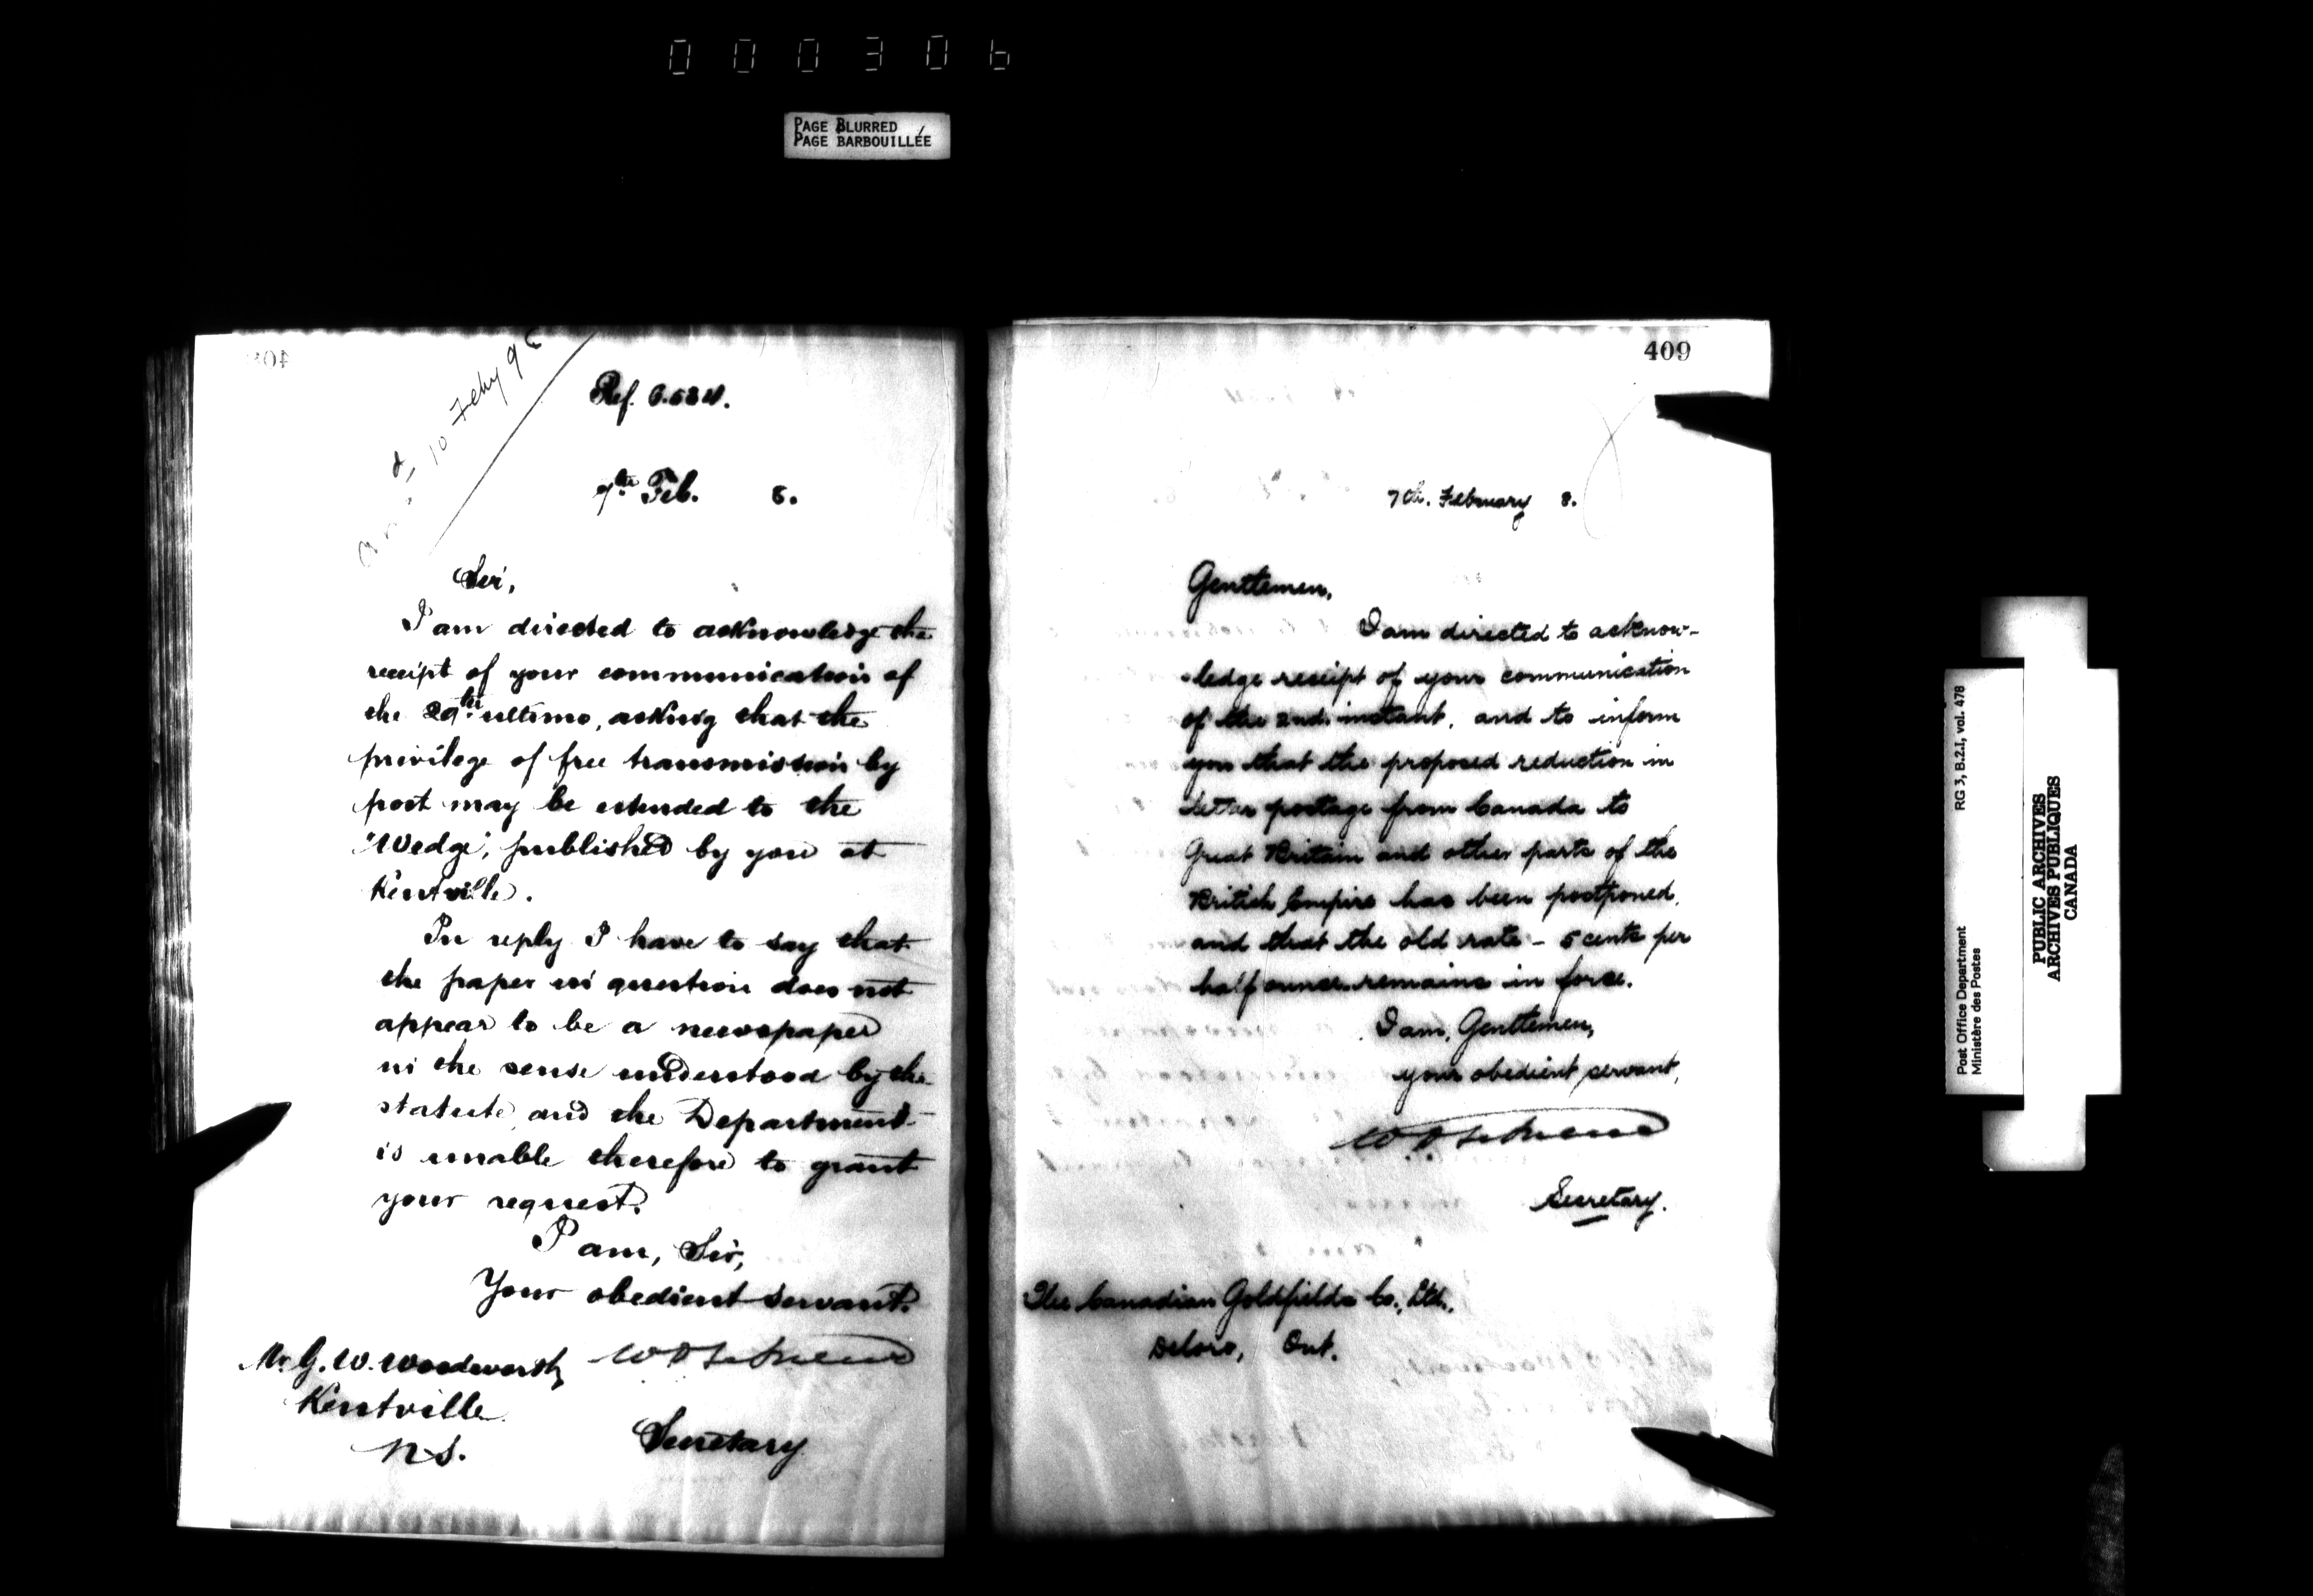 000306
PAGE BLURRED
PAGE BARBOUILLÉE
10 Feby 9
Ref.
7th Feb. 8.
Sir,
I am directed to acknowledge the
receipt of your communication of
the 29th ultimo, asking that the
privilege of free transmission by
post may be extended to the
"Wedge", published by you at
Kentville.
In reply I have to say that
the paper in question does not
appear to be a newspaper
in the sense understood by the
statute, and the Department
is unable therefore to grant
your request.
I am, Sir,
Your obedient servant.
Mr. G. W. Woodworth,
Kentville
N.S.
Secretary
409
7th. February 8.
Gentlemen,
I am directed to acknow-
-ledge receipt of your communication
of the 2nd. instant, and to inform
you that the proposed reduction in
letter postage from Canada to
Great Britain and other parts of the
British Empire has been postponed,
and that the old rate - 5 cents per
half ounce remains in force.
I am, Gentlemen,
your obedient servant,
Secretary.
The Canadian Goldfields Co., Ltd.,
Deloro, Ont.
Post Office Department
Ministère des Postes
RG 3, B.2.I, vol. 478
PUBLIC ARCHIVES
ARCHIVES PUBLIQUES
CANADA